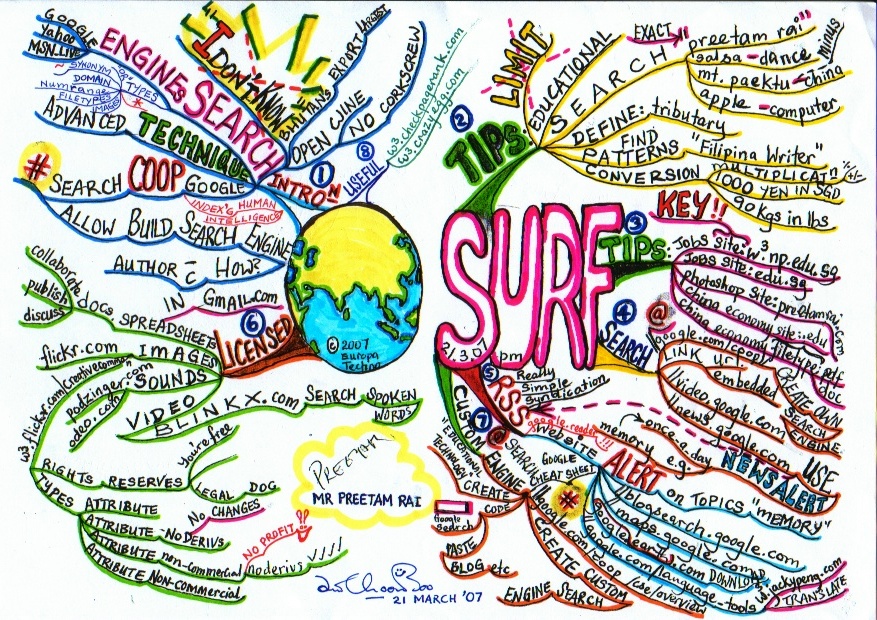 GOOGLE
Yahoo
MSN_LIVE
ENGINES
SYNONYM
DOMAIN
Numrange
FILETYPES
IMAGE
"OP" TYPES
ADVANCED
TECHNIQUE
SEARCH
I DON'T KNOW
BHUTAN'S EXPORT LARGEST
OPEN WINE
NO CORKSCREW
① INTROn
⑧ USEFUL
w3.checkpagerank.com
w3.crazy2gga.com
# SEARCH COOP Google
INDEX'G HUMAN
INTELLIGENCE
ALLOW BUILD SEARCH ENGINE
AUTHOR HOW?
IN Gmail.com
© 2007
Europa
Techno
SURF
21.3.07 pm
② TIPS:
LIMIT
EDUCATIONAL
SEARCH
EXACT
"preetam rai"
salsa - dance
minus
mt. paektu - china
apple - computer
DEFINE: tributary
FIND
PATTERNS "Filipina Writer"
CONVERSION
MULTIPLICATn
1000 YEN IN SGD
90 kgs in lbs
KEY!!
③ TIPS:
Jobs site: w3.np.edu.sg
Jobs site: edu.sg
photoshop site: preetamrai.com
china economy site: .edu
china economy filetype: pdf
doc
④ SEARCH
@
google.com/coop/
CREATE OWN
SEARCH
ENGINE
LINK url embedded
//video.google.com
//news.google.com
USE
⑤ RSS
Really
Simple
Syndication
google.reader!!!
website
memory once-a-day
e.g. NEWS ALERT
ALERT
on TOPICS "MEMORY"
GOOGLE
CHEAT SHEET
#
//blogsearch.google.com
maps.google.com
DOWNLOAD
//google.com/language-tools
TRANSLATE
w3.jackypeng.com
//google.com/coop/cse/overview
⑥ LICENSED
collaborate
publish
discuss
docs SPREADSHEETS
flickr.com IMAGES
w3.flickr.com/creativecommon
SOUNDS
Podzinger.com
odeo.com
VIDEO
BLINKX.com SEARCH SPOKEN
WORDS
RIGHTS RESERVES
You're free
LEGAL DOC
TYPES
ATTRIBUTE
NO CHANGES
ATTRIBUTE - NO DERIVS
ATTRIBUTE non-commercial noderivs
NO PROFIT!!
ATTRIBUTE NON-COMMERCIAL
PREETAM
MR PREETAM RAI
⑦ CUSTOM
@ SEARCH
ENGINE
"EDUCATIONAL
TECHNOLOGY"
CREATE
CODE
Google
Search
PASTE
BLOG etc
CREATE CUSTOM
ENGINE SEARCH
21 MARCH '07